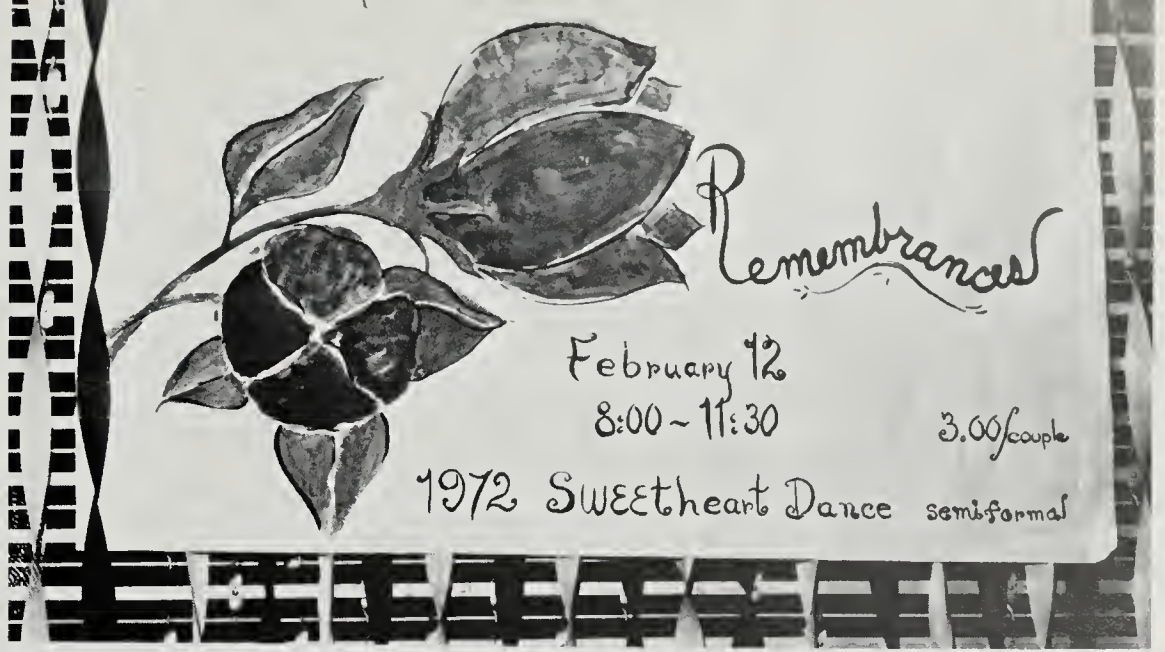 Remembrances
February 12
8:00 ~ 11:30
3.00/couple
1972 Sweetheart Dance semiformal